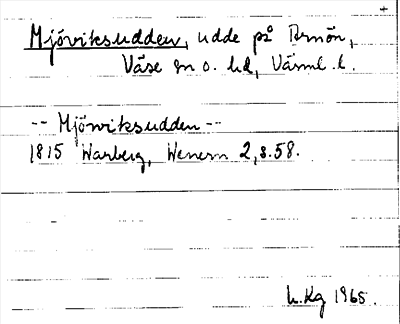 Mjöviksudden, udde på Arnön,
Väse sn o. hd, Värml. l.
-- Mjöwiksudden --
1815 Warberg, Wenern 2, s. 58.
L. Kg 1965.